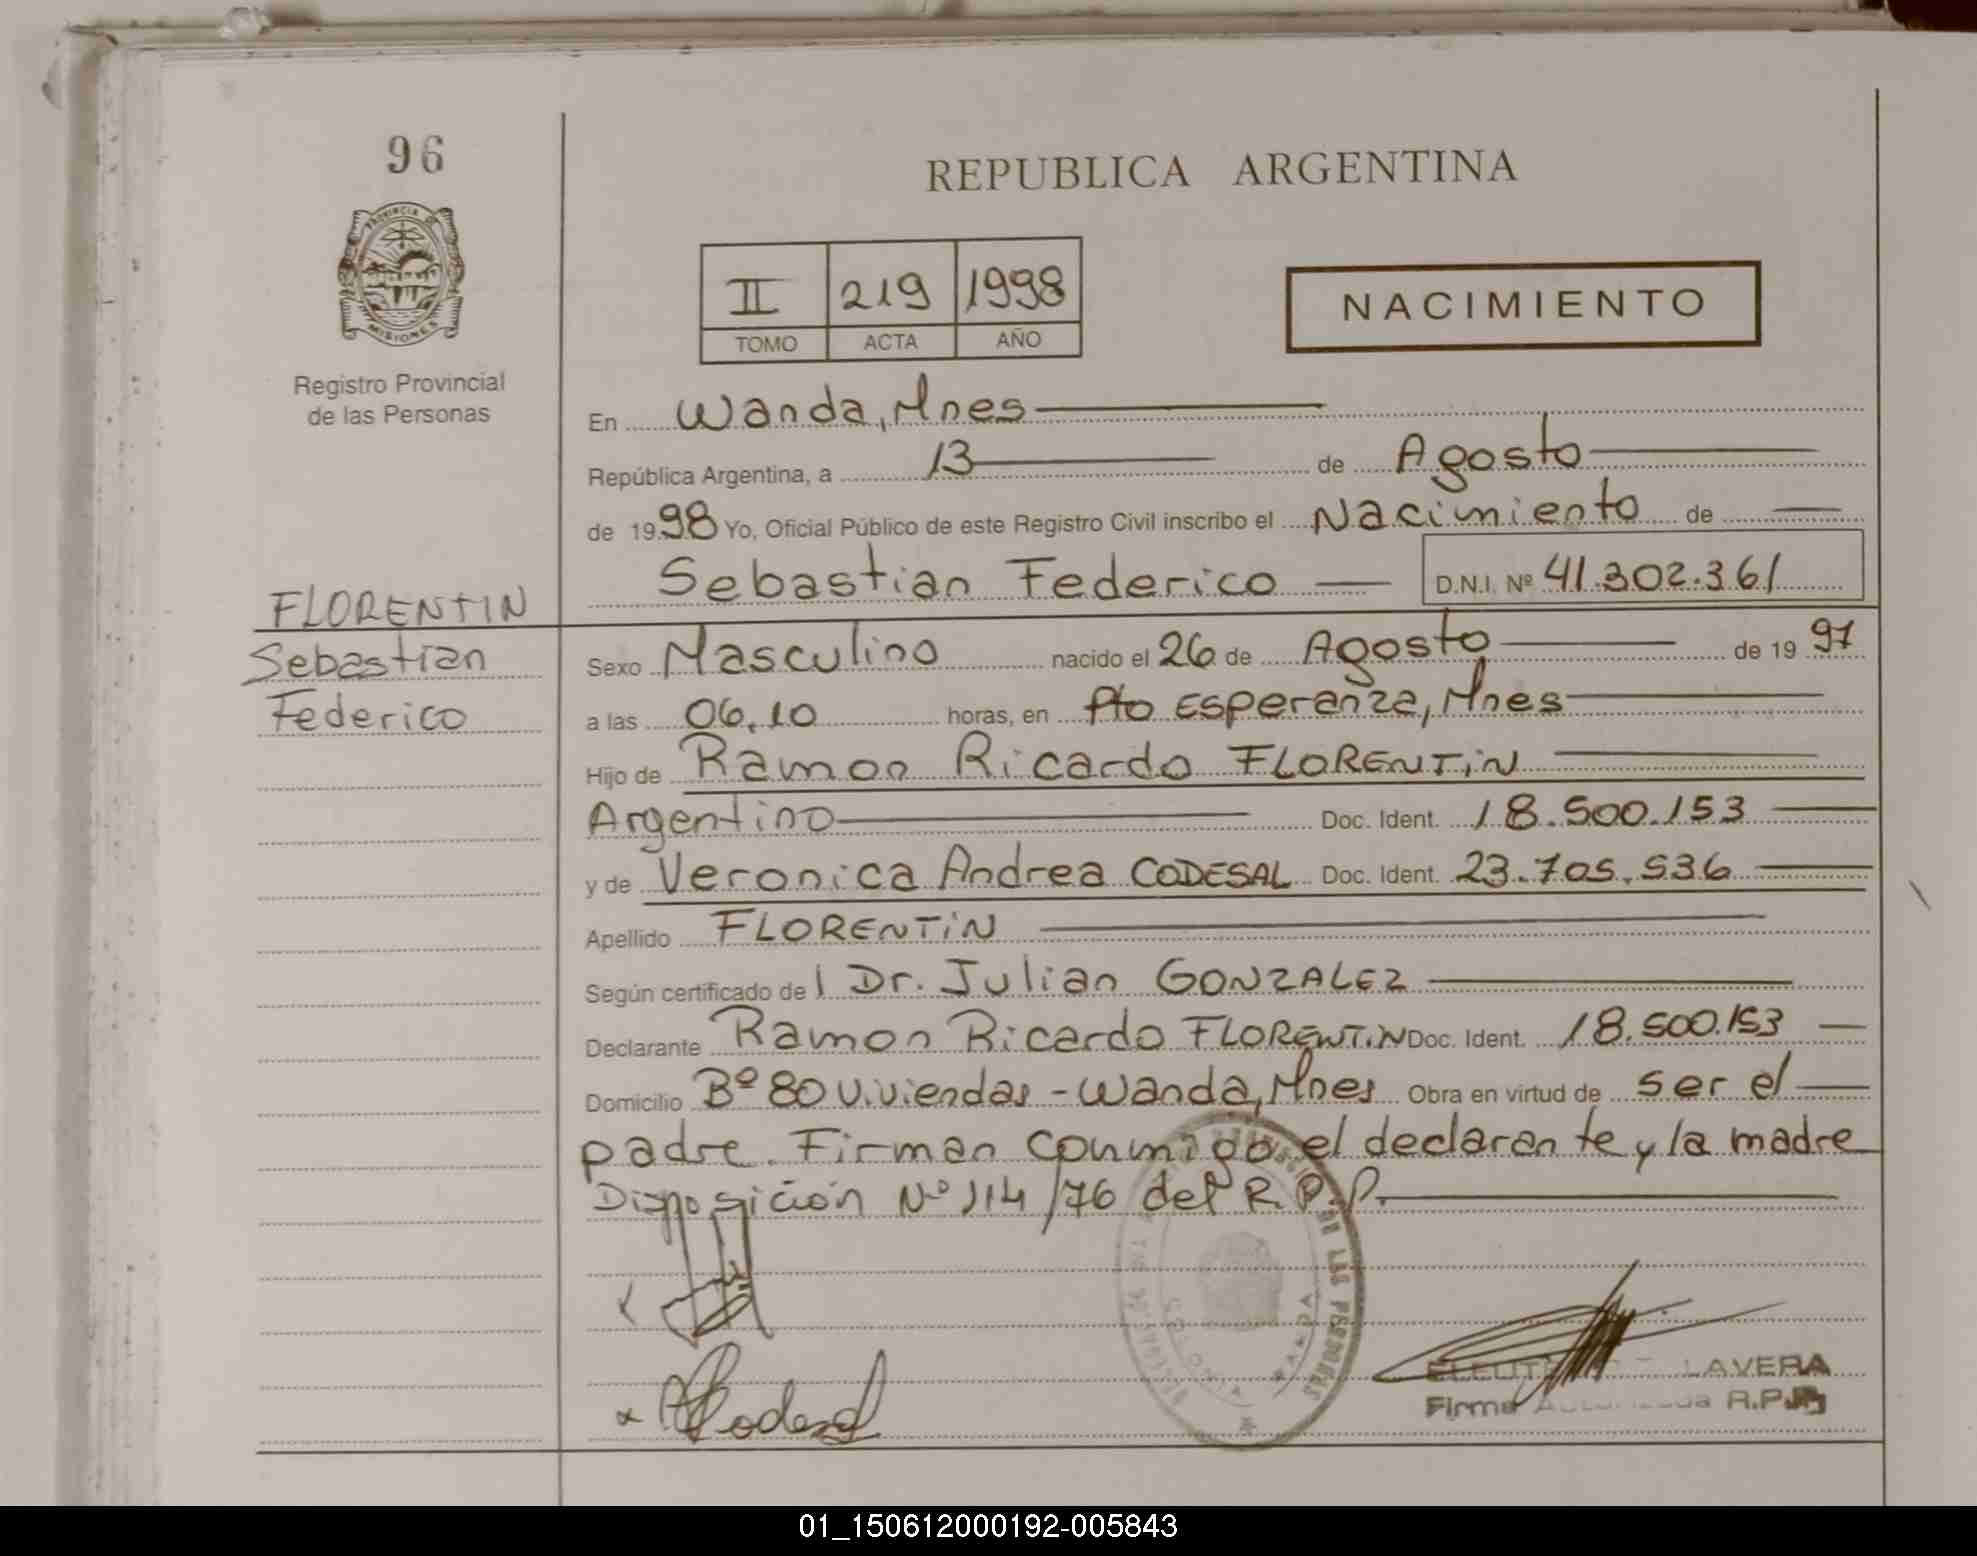 96
REPUBLICA ARGENTINA
PROVINCIA DE
MISIONES
Registro Provincial
de las Personas
II 219 1998
TOMO ACTA AÑO
NACIMIENTO
En Wanda, Mnes
República Argentina, a 13 de Agosto
de 1998 Yo, Oficial Público de este Registro Civil inscribo el Nacimiento de
Sebastian Federico D.N.I. Nº 41.302.361
FLORENTIN
Sebastian
Federico
Sexo Masculino nacido el 26 de Agosto de 1997
a las 06,10 horas, en Pto Esperanza, Mnes
Hijo de Ramon Ricardo FLORENTIN
Argentino Doc. Ident. 18.500.153
y de Veronica Andrea CODESAL Doc. Ident. 23.705.536
Apellido FLORENTIN
Según certificado del Dr. Julian GONZALEZ
Declarante Ramon Ricardo FLORENTIN Doc. Ident. 18.500.153
Domicilio Bº 80 Viviendas - Wanda, Mnes Obra en virtud de ser el
padre. Firman conmigo el declarante y la madre
Disposición Nº 114/76 del R.P.P.
DE LAS PERSONAS
COLONIA WANDA
LAVERA
Firma R.P.P.
01_150612000192-005843